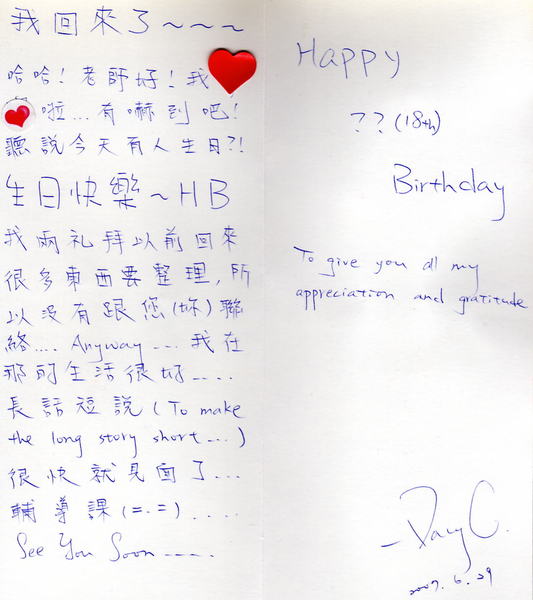 我回來了~~~
哈哈!老師好!我
啦...有嚇到吧!
聽說今天有人生日?!
生日快樂~HB
我兩礼拜以前回來
很多東西要整理,所
以沒有跟您(妳)聯
絡.... Anyway.... 我在
那的生活很好....
長話短說(To make
the long story short...)
很快就見面了...
輔導課(=.=).....
See You Soon....
Happy
??(18th)
Birthday
To give you all my
appreciation and gratitude
2007.6.29